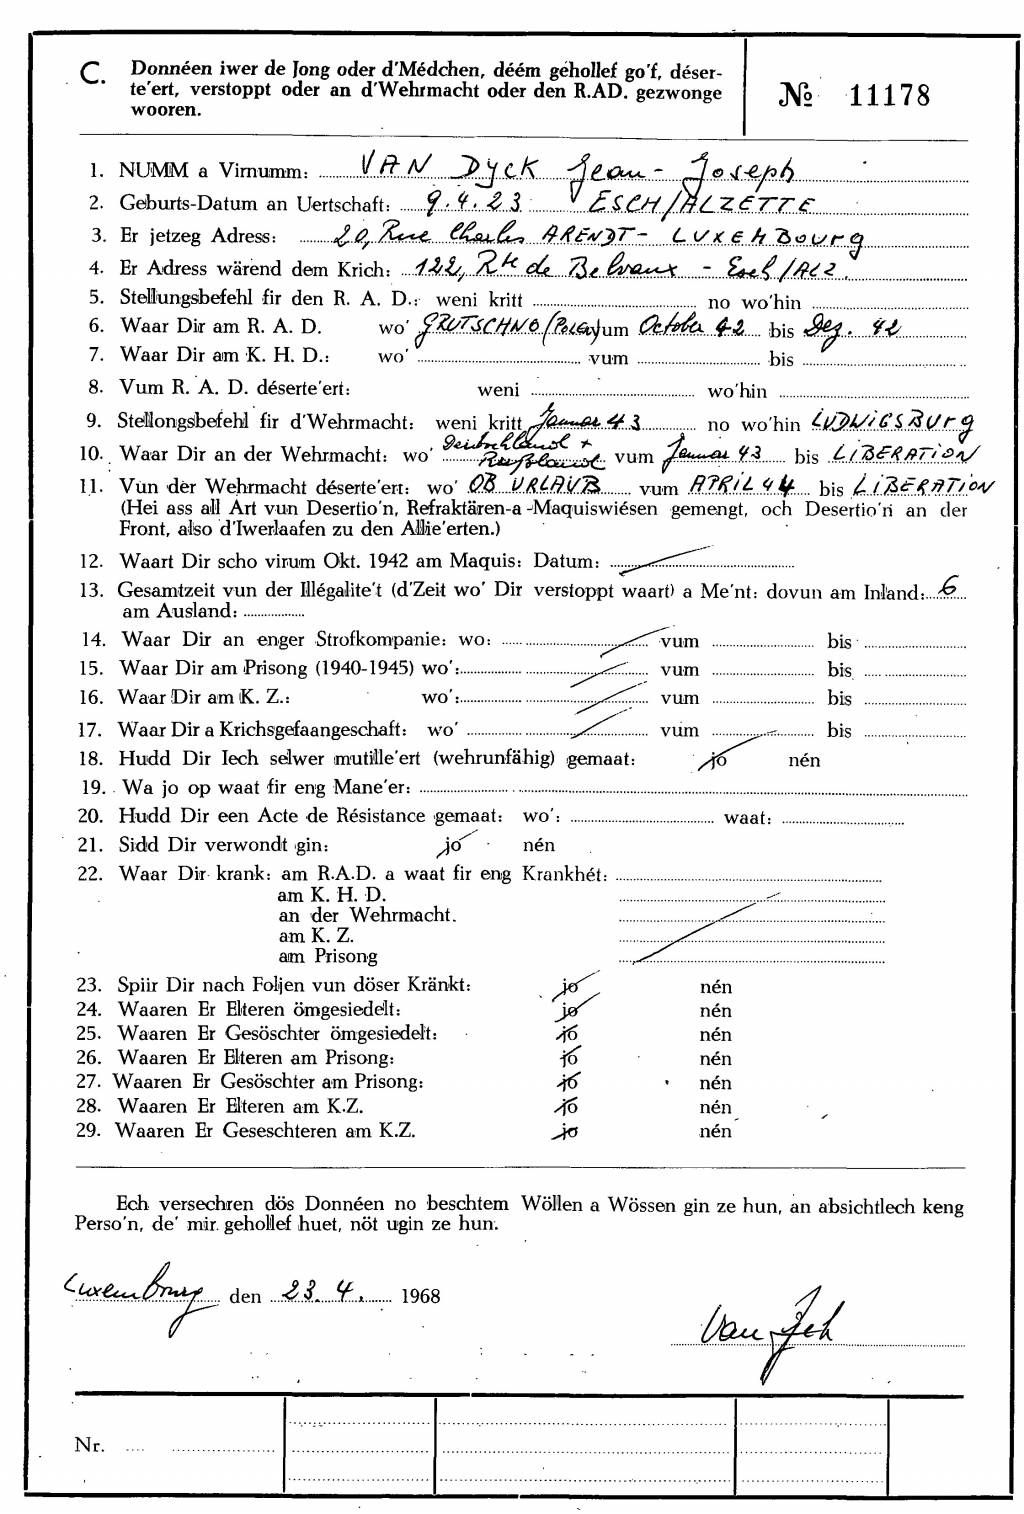 C. Donnéen iwer de Jong oder d'Médchen, déém gehollef go'f, déser-
te'ert, verstoppt oder an d'Wehrmacht oder den R.AD. gezwonge
wooren.
№ 11178
1. NUMM a Virnumm: VAN DYCK Jean-Joseph
2. Geburts-Datum an Uertschaft: 9.4.23 ESCH/ALZETTE
3. Er jetzeg Adress: 20, Rue Charles ARENDT - LUXEMBOURG
4. Er Adress wärend dem Krich: 122, Rte de Belvaux - Esch/ALZ.
5. Stellungsbefehl fir den R. A. D.: weni kritt no wo'hin
6. Waar Dir am R. A. D. wo' GRUTSCHNO/(POLEN) vum October 42 bis Dez. 42
7. Waar Dir am K. H. D.: wo' vum bis
8. Vum R. A. D. déserte'ert: weni wo'hin
9. Stellongsbefehl fir d'Wehrmacht: weni kritt Januar 43 no wo'hin LUDWIGSBURG
10. Waar Dir an der Wehrmacht: wo' Deutschland + Rußland vum Januar 43 bis LIBERATION
11. Vun der Wehrmacht déserte'ert: wo' OB URLAUB vum APRIL 44 bis LIBERATION
(Hei ass all Art vun Desertio'n, Refraktären-a-Maquiswiésen gemengt, och Desertio'n an der
Front, also d'Iwerlaafen zu den Allie'erten.)
12. Waart Dir scho virum Okt. 1942 am Maquis: Datum:
13. Gesamtzeit vun der Illégalite't (d'Zeit wo' Dir verstoppt waart) a Me'nt: dovun am Inland: 6
am Ausland:
14. Waar Dir an enger Strofkompanie: wo: vum bis
15. Waar Dir am Prisong (1940-1945) wo': vum bis
16. Waar Dir am K. Z.: wo': vum bis
17. Waar Dir a Krichsgefaangeschaft: wo' vum bis
18. Hudd Dir Iech selwer mutille'ert (wehrunfähig) gemaat: jo nén
19. Wa jo op waat fir eng Mane'er:
20. Hudd Dir een Acte de Résistance gemaat: wo': waat:
21. Sidd Dir verwondt gin: jo nén
22. Waar Dir krank: am R.A.D. a waat fir eng Krankhét:
am K. H. D.
an der Wehrmacht.
am K. Z.
am Prisong
23. Spiir Dir nach Foljen vun döser Kränkt: jo nén
24. Waaren Er Elteren ömgesiedelt: jo nén
25. Waaren Er Gesöschter ömgesiedelt: jo nén
26. Waaren Er Elteren am Prisong: jo nén
27. Waaren Er Gesöschter am Prisong: jo nén
28. Waaren Er Elteren am K.Z. jo nén
29. Waaren Er Geseschteren am K.Z. jo nén
Ech versechren dös Donnéen no beschtem Wöllen a Wössen gin ze hun, an absichtlech keng
Perso'n, de' mir gehollef huet, nöt ugin ze hun.
Luxembourg den 23. 4. 1968
Nr.